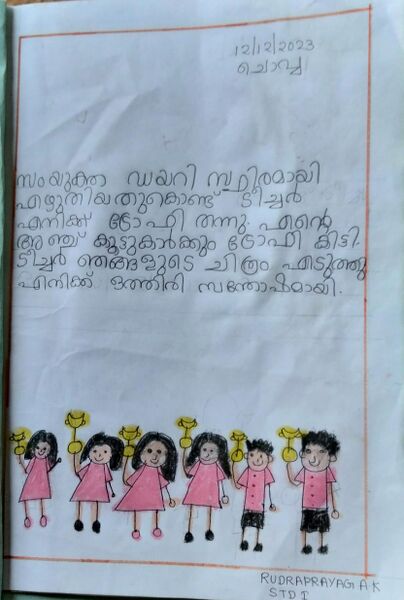 12/12/2023
ചൊവ്വ
സംയുക്താ ഡയറി സ്ഥിരമായി
എഴുതിയതുകൊണ്ട് ടീച്ചർ
എനിക്ക് ട്രോഫി തന്നു. എന്റെ
അഞ്ച് കൂട്ടുകാർക്കും ട്രോഫി കിട്ടി.
ടീച്ചർ ഞങ്ങളുടെ ചിത്രം എടുത്തു
എനിക്ക് ഒത്തിരി സന്തോഷമായി.
RUDRAPRAYAG A K
STD I